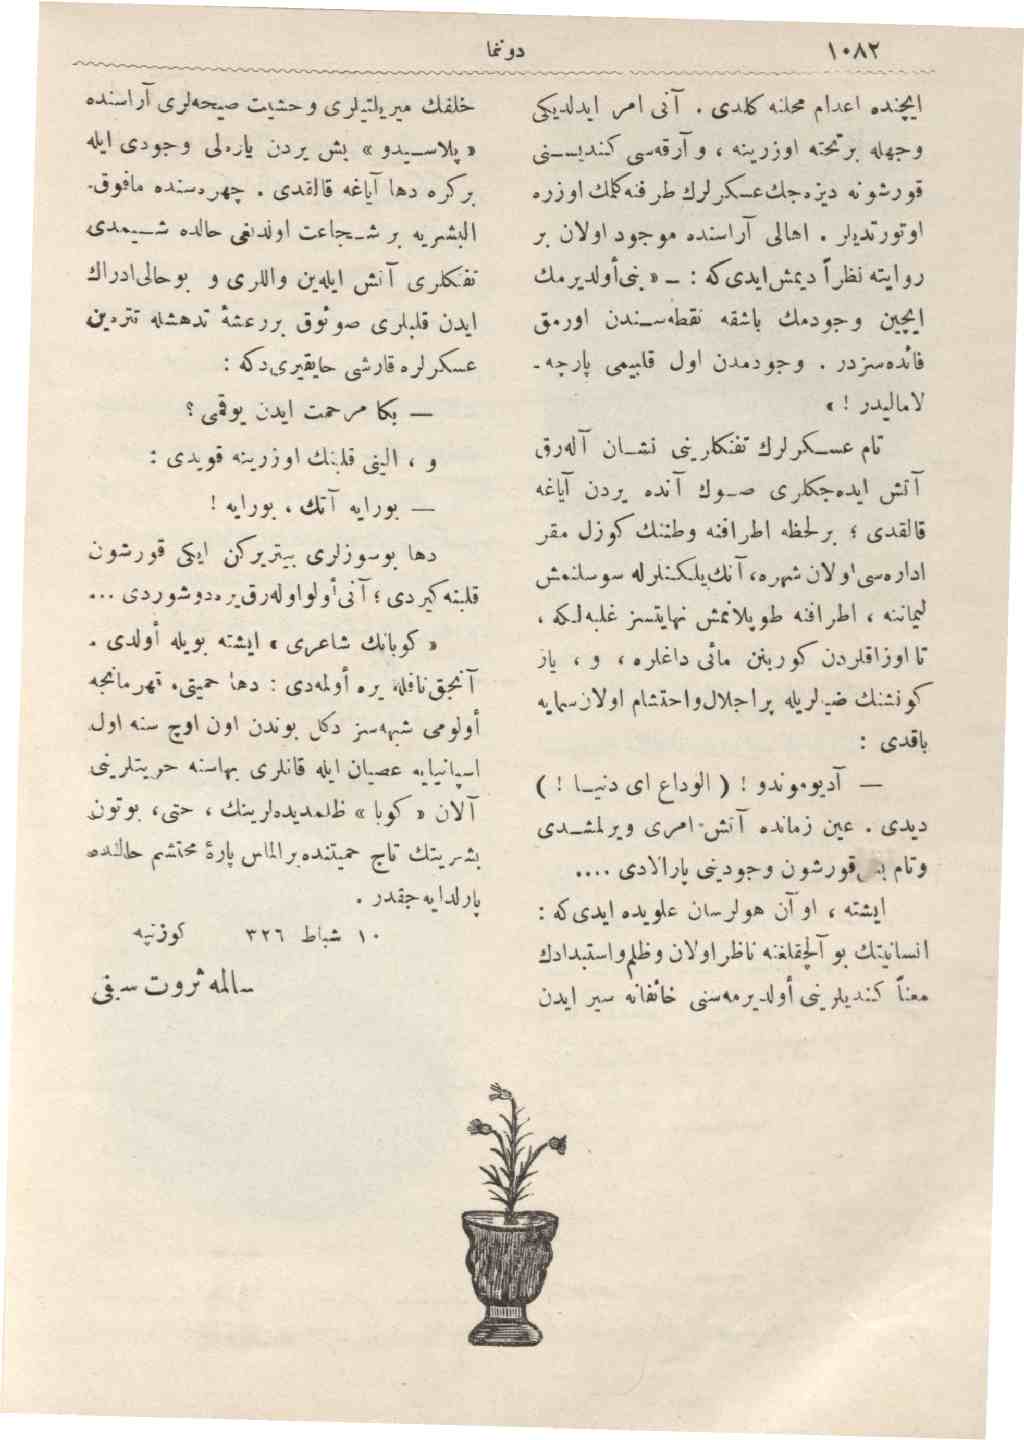 ١٠٨٢
دونما
ايچنده اعدام محلنه كلدى . آنى امر ايدلديكى
وجهله بر تخته اوزرينه ، و آرقه‌سى كنديسـنى
قورشونه ديزه‌جك عسكرلرك طرفنه كلمك اوزره
اوتورتديلر . اهالى آراسنده موجود اولان بر
روايته نظراً ديمش ايدى كه : ـ « بنى أولديرمك
ايچين وجودمك باشقه نقطه‌سـندن اورمق
فائده‌سزدر . وجودمدن اول قلبيمى پارچه ـ
لاماليدر ! »
تام عسـكرلرك تفنكلرينى نشـان آله‌رق
آتش ايده‌جكلرى صـوك آنده يردن آياغه
قالقدى ؛ بر لحظه اطرافنه وطننك كوزل مقر
اداره‌سى اولان شهره، آنك يلكنلرله سوسلنمش
ليماننه ، اطرافنه طوپلانمش نهايتسز غلبه‌لكه ،
تا اوزاقلردن كورينن مائى داغلره ، و ، ياز
كونشنك ضيالريله پر اجلال و احتشام اولان سمايه
باقدى :
— آديوموندو ! ( الوداع اى دنيـا ! )
ديدى . عين زمانده آتش امرى ويرلمشـدى
وتام بش قورشون وجودينى پارالادى ....
ايشته ، او آن هولرسان علويده ايدى كه :
انسانيتك بو آلچقلغنه ناظر اولان و ظلم و استبدادك
معناً كنديلرينى أولديرمه‌سنى خائفانه سير ايدن
خلقك ميريلتيلرى و حشيت صيحه‌لرى آراسنده
« پلاسـيدو » بش يردن ياره‌لى وجودى ايله
بر كره دها آياغه قالقدى . چهره‌سنده مافوق ـ
البشريه بر شـجاعت اولديغى حالده شـيمدى
تفنكلرى آتش ايله‌ين واللرى و بو حالى ادراك
ايدن قلبلرى صوئوق بر رعشۀ تدهشله تتره‌ين
عسكرلره قارشى حايقيريردكه :
— بكا مرحمت ايدن يوقمى ؟
و ، الينى قلبنك اوزرينه قويدى :
— بورايه آتك ، بورايه !
دها بو سوزلرى بيتريركن ايكى قورشون
قلبنه كيردى ؛ آنى أولو اوله‌رق يره دوشوردى ...
« كوبانك شاعرى » ايشته بويله أولدى .
آنجق نافله يره أولمه‌دى : دها حميتى، قهرمانجه
أولومى شبهه‌سز دكل بوندن اون اوچ سنه اول
اسپانيايه عصيان ايله قانلرى بهاسنه حريتلرينى
آلان « كوبا » ظلمديده‌لرينك ، حتى، بوتون
بشريتك تاج حميتنده بر الماس پارۀ محتشم حالنده
پارلدايه‌جقدر .
١٠ شباط ٣٢٦ كوزتپه
سالمه ثروت سيفى